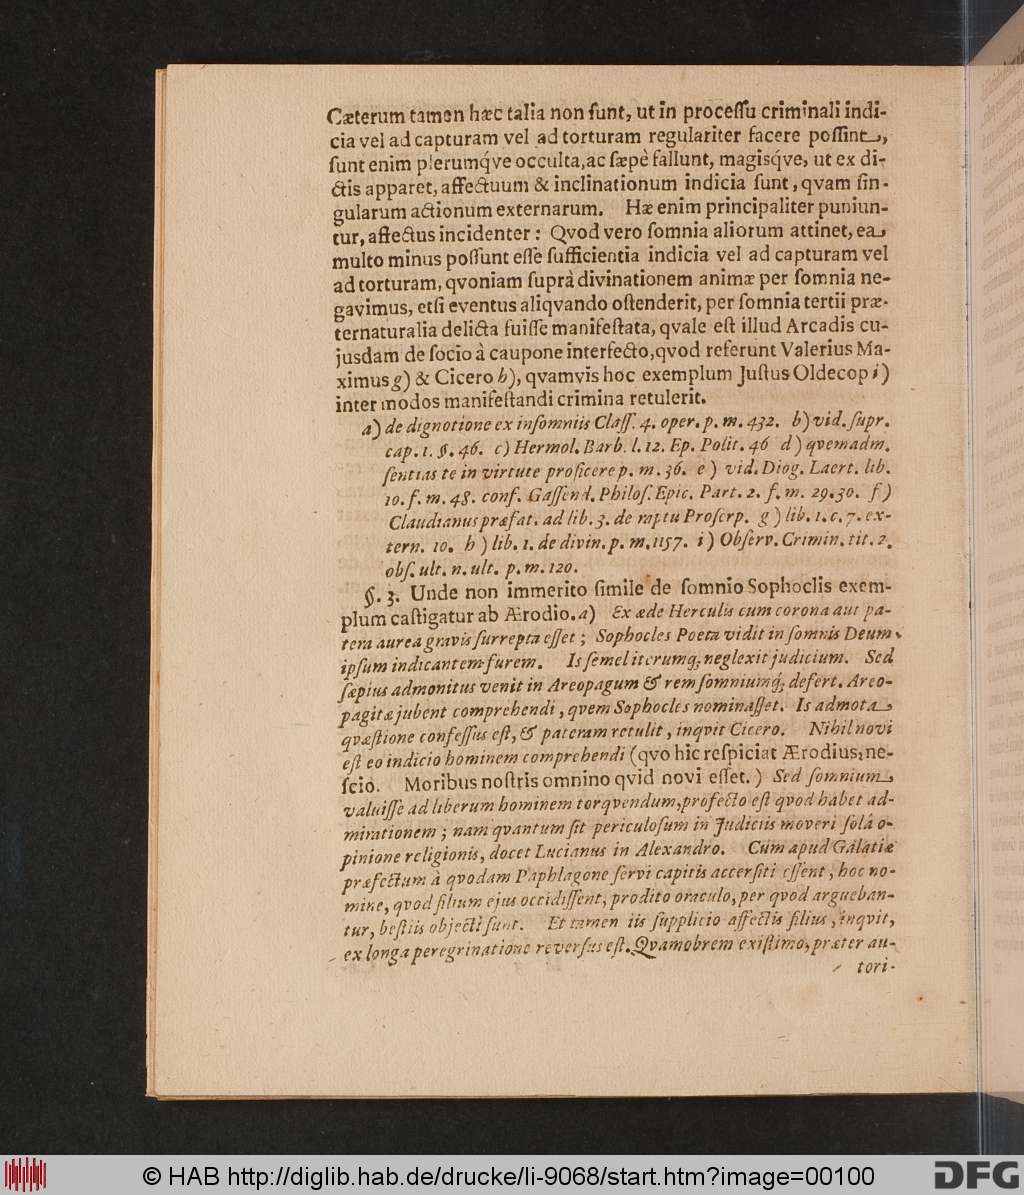 Cæterum tamen hæc talia non ſunt, ut in proceſſu criminali indi-
cia vel ad capturam vel ad torturam regulariter facere poſſint,
ſunt enim plerumq́ve occulta, ac ſæpè fallunt, magisq́ve, ut ex di-
ctis apparet, affectuum & inclinationum indicia ſunt, qvam ſin-
gularum actionum externarum. Hæ enim principaliter puniun-
tur, affectus incidenter: Qvod vero ſomnia aliorum attinet, ea
multo minus poſſunt eſſe ſufficientia indicia vel ad capturam vel
ad torturam, qvoniam ſuprà divinationem animæ per ſomnia ne-
gavimus, etſi eventus aliqvando oſtenderit, per ſomnia tertii præ-
ternaturalia delicta fuiſſe manifeſtata, qvale eſt illud Arcadis cu-
jusdam de ſocio à caupone interfecto, qvod referunt Valerius Ma-
ximus g) & Cicero h), qvamvis hoc exemplum Juſtus Oldecop i)
inter modos manifeſtandi crimina retulerit.
a) de dignotione ex inſomniis Claſſ. 4. oper. p. m. 432. b) vid. ſupr.
cap. 1. §. 46. c) Hermol. Barb. l. 12. Ep. Polit. 46 d) qvemadm.
ſentias te in virtute proficere p. m. 36. e) vid. Diog. Laert. lib.
10. f. m. 48. conf. Gaſſend. Philoſ. Epic. Part. 2. f. m. 29. 30. f)
Claudianus præfat. ad lib. 3. de raptu Proſerp. g) lib. 1. c. 7. ex-
tern. 10. h) lib. 1. de divin. p. m. 1157. i) Obſerv. Crimin. tit. 2.
obſ. ult. n. ult. p. m. 120.
§. 3. Unde non immerito ſimile de ſomnio Sophoclis exem-
plum caſtigatur ab Ærodio. a) Ex æde Herculis cum corona aut pa-
tera aurea gravis ſurrepta eſſet; Sophocles Poeta vidit in ſomnis Deum
ipſum indicantem furem. Is ſemel iterumq; neglexit judicium. Sed
ſæpius admonitus venit in Areopagum & rem ſomniumq́; defert. Areo-
pagitæ jubent comprehendi, qvem Sophocles nominaſſet. Is admota
qvæſtione confeſſus eſt, & pateram retulit, inqvit Cicero. Nihil novi
eſt eo indicio hominem comprehendi (qvo hic reſpiciat Ærodius, ne-
ſcio. Moribus noſtris omnino qvid novi eſſet.) Sed ſomnium
valuiſſe ad liberum hominem torqvendum, profecto eſt qvod habet ad-
mirationem; nam qvantum ſit periculoſum in Judiciis moveri ſolâ o-
pinione religionis, docet Lucianus in Alexandro. Cum apud Galatiæ
præfectum à qvodam Paphlagone ſervi capitis accerſiti eſſent, hoc no-
mine, qvod filium ejus occidiſſent, prodito oraculo, per qvod argueban-
tur, beſtiis objecti ſunt. Et tamen iis ſupplicio affectis filius, inqvit,
ex longa peregrinatione reverſus eſt. Qvamobrem exiſtimo, præter au-
tori-
© HAB http://diglib.hab.de/drucke/li-9068/start.htm?image=00100
DFG